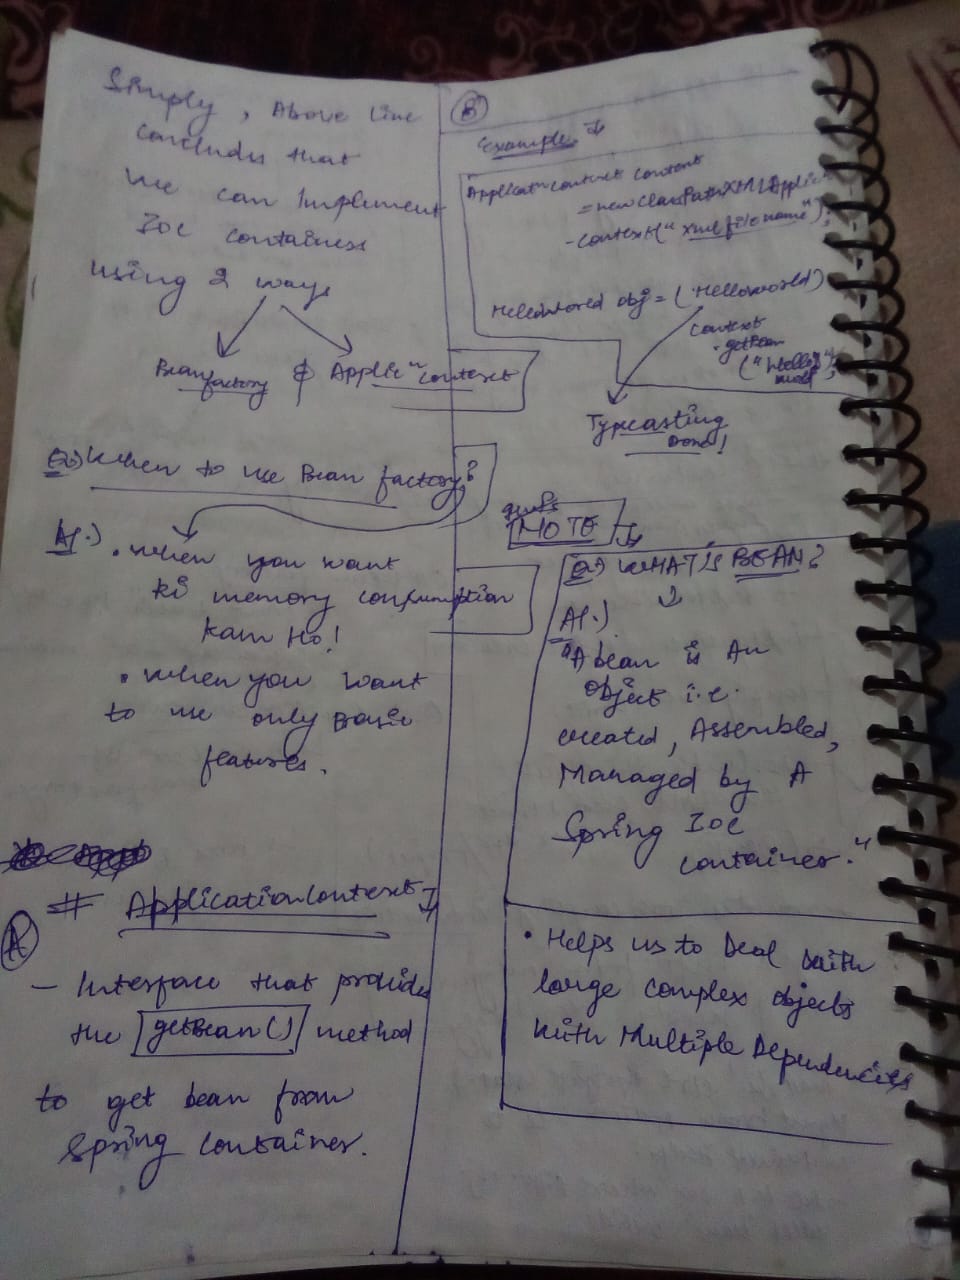 Simply, Above line
concludes that
we can Implement
IOC containers
using 2 ways
Bean factory & Applicⁿ context
Q.) When to use Bean factory?
A.) . When you want
ki memory consumption
kam Ho!
. When you want
to use only Basic
features.
# Application Context
A
- Interface that provides
the getBean() method
to get bean from
Spring container.
B
Example
Applicatⁿ context context
= new ClassPathXMLApplicⁿ
-context("xml file name");
HelloWorld obj = (HelloWorld)
context
.getBean
("Hello
world");
Typecasting
Done!
NOTE
Q.) WHAT IS BEAN?
A.)
"A bean is An
object i.e.
created, Assembled,
Managed by A
Spring IOC
container."
• Helps us to Deal with
large complex objects
with Multiple Dependencies